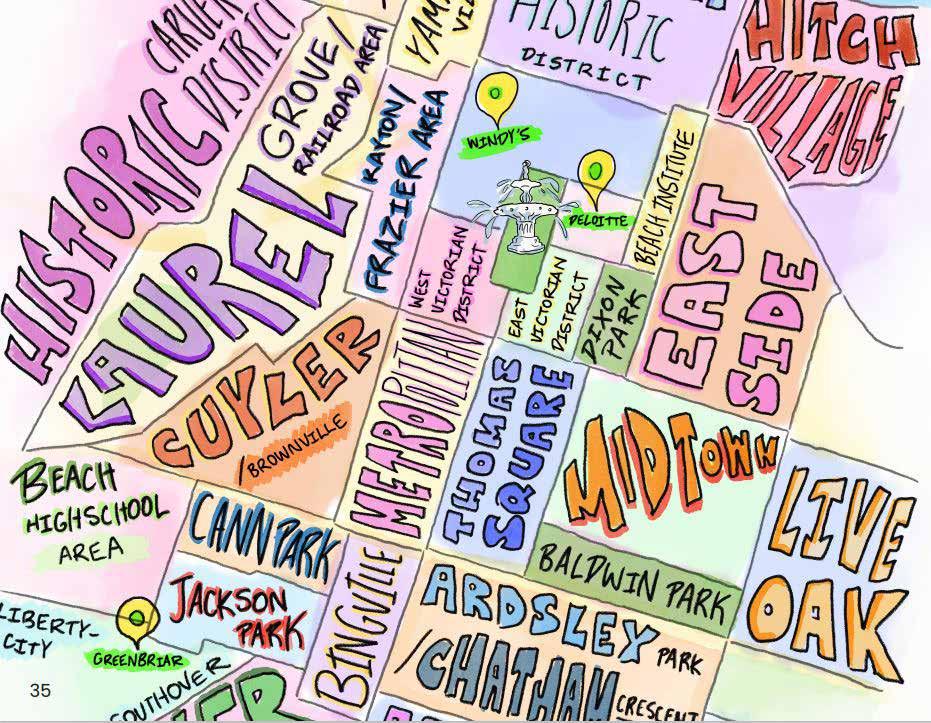 HISTORIC
DISTRICT
HITCH
VILLAGE
HISTORIC
DISTRICT
GROVE/
RAILROAD AREA
KAYTON/
FRAZIER AREA
WINDY'S
DELOITTE
BEACH INSTITUTE
LAUREL
WEST
VICTORIAN
DISTRICT
EAST
VICTORIAN
DISTRICT
DIXON
PARK
EAST
SIDE
CUYLER
/BROWNVILLE
METROPOLITAN
THOMAS
SQUARE
MIDTOWN
LIVE
OAK
BEACH
HIGHSCHOOL
AREA
CANN PARK
JACKSON
PARK
BINGVILLE
BALDWIN PARK
ARDSLEY PARK
/CHATHAM CRESCENT
LIBERTY-
CITY
GREENBRIAR
SOUTHOVER
35